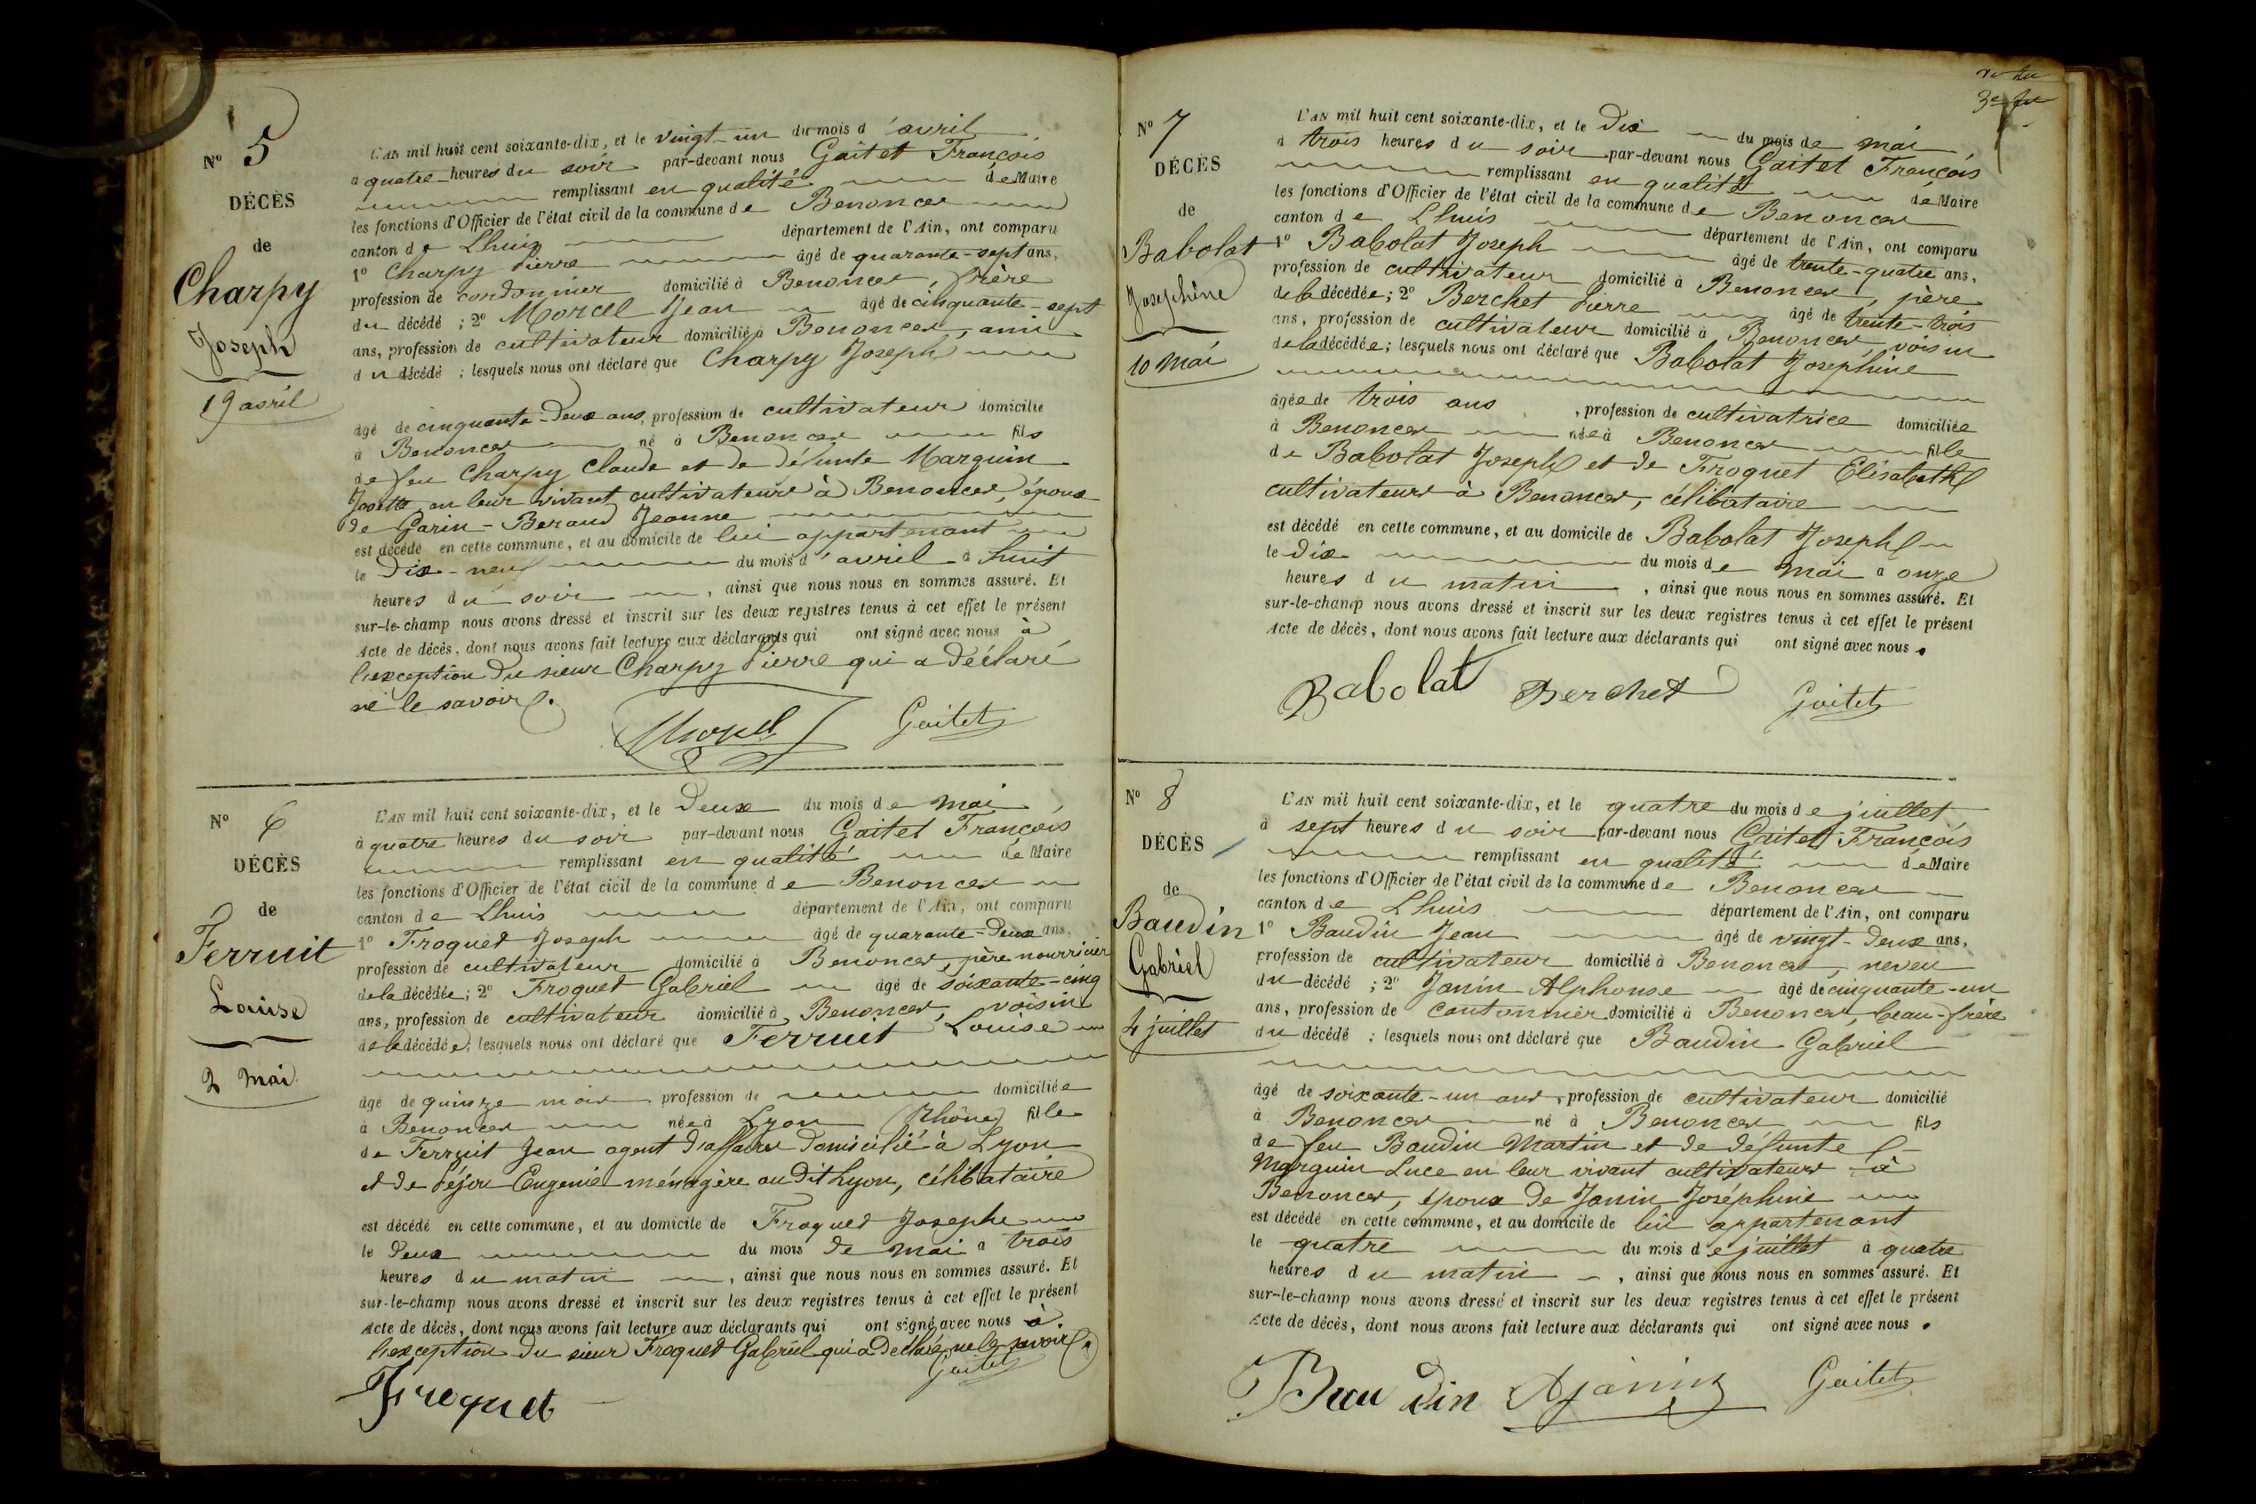 N° 5
DÉCÈS
de
Charpy
Joseph
19 avril
L'AN mil huit cent soixante-dix, et le vingt-un du mois d'avril
à quatre heures du soir par-devant nous Gaitet François
remplissant en qualité de Maire
les fonctions d'Officier de l'état civil de la commune de Benonces
canton de Lhuis département de l'Ain, ont comparu
1° Charpy Pierre âgé de quarante-sept ans,
profession de cordonnier domicilié à Benonces, frère
du décédé ; 2° Morcel Jean âgé de cinquante-sept
ans, profession de cultivateur domicilié à Benonces, ami
du décédé ; lesquels nous ont déclaré que Charpy Joseph
âgé de cinquante-deux ans, profession de cultivateur domicilié
à Benonces né à Benonces fils
de feu Charpy Claude et de défunte Marguin
Josette en leur vivant cultivateurs à Benonces, époux
de Garin-Beraud Jeanne
est décédé en cette commune, et au domicile de lui appartenant
le dix-neuf du mois d'avril à huit
heures du soir, ainsi que nous nous en sommes assuré. Et
sur-le-champ nous avons dressé et inscrit sur les deux registres tenus à cet effet le présent
Acte de décès, dont nous avons fait lecture aux déclarants qui ont signé avec nous à
l'exception du sieur Charpy Pierre qui a déclaré
ne le savoir.
Morcel Gaitet
N° 6
DÉCÈS
de
Ferruit
Louise
2 mai
L'AN mil huit cent soixante-dix, et le deux du mois de mai
à quatre heures du soir par-devant nous Gaitet François
remplissant en qualité de Maire
les fonctions d'Officier de l'état civil de la commune de Benonces
canton de Lhuis département de l'Ain, ont comparu
1° Froquet Joseph âgé de quarante-deux ans,
profession de cultivateur domicilié à Benonces, père nourricier
de la décédée ; 2° Froquet Gabriel âgé de soixante-cinq
ans, profession de cultivateur domicilié à Benonces, voisin
de la décédée ; lesquels nous ont déclaré que Ferruit Louise
âgé de quinze mois profession de domiciliée
à Benonces née à Lyon (Rhône) fille
de Ferruit Jean agent d'affaires domicilié à Lyon
et de Péjou Eugenie ménagère au dit Lyon, célibataire
est décédé en cette commune, et au domicile de Froquet Josephe
le deux du mois de mai à trois
heures du matin, ainsi que nous nous en sommes assuré. Et
sur-le-champ nous avons dressé et inscrit sur les deux registres tenus à cet effet le présent
Acte de décès, dont nous avons fait lecture aux déclarants qui ont signé avec nous à
l'exception du sieur Froquet Gabriel qui a déclaré ne le savoir.
Froquet Gaitet
N° 7
DÉCÈS
de
Babolat
Josephine
10 mai
L'AN mil huit cent soixante-dix, et le dix du mois de mai
à trois heures du soir par-devant nous Gaitet François
remplissant en qualité de Maire
les fonctions d'Officier de l'état civil de la commune de Benonces
canton de Lhuis département de l'Ain, ont comparu
1° Babolat Joseph âgé de trente-quatre ans,
profession de cultivateur domicilié à Benonces, père
de la décédée ; 2° Berchet Pierre âgé de trente-trois
ans, profession de cultivateur domicilié à Benonces voisin
de la décédée ; lesquels nous ont déclaré que Babolat Joséphine
âgée de trois ans, profession de cultivatrice domiciliée
à Benonces née à Benonces fille
de Babolat Joseph et de Froquet Elisabeth
cultivateurs à Benonces, célibataire
est décédé en cette commune, et au domicile de Babolat Joseph
le dix du mois de mai à onze
heures du matin, ainsi que nous nous en sommes assuré. Et
sur-le-champ nous avons dressé et inscrit sur les deux registres tenus à cet effet le présent
Acte de décès, dont nous avons fait lecture aux déclarants qui ont signé avec nous.
Babolat Berchet Gaitet
N° 8
DÉCÈS
de
Baudin
Gabriel
4 juillet
L'AN mil huit cent soixante-dix, et le quatre du mois de juillet
à sept heures du soir par-devant nous Gaitet François
remplissant en qualité de Maire
les fonctions d'Officier de l'état civil de la commune de Benonces
canton de Lhuis département de l'Ain, ont comparu
1° Baudin Jean âgé de vingt-deux ans,
profession de cultivateur domicilié à Benonces, neveu
du décédé ; 2° Janin Alphonse âgé de cinquante-un
ans, profession de cantonnier domicilié à Benonces, beau-frère
du décédé ; lesquels nous ont déclaré que Baudin Gabriel
âgé de soixante-un ans, profession de cultivateur domicilié
à Benonces né à Benonces fils
de feu Baudin Martin et de défunte
Marguin Luce en leur vivant cultivateurs à
Benonces, époux de Janin Joséphine
est décédé en cette commune, et au domicile de lui appartenant
le quatre du mois de juillet à quatre
heures du matin, ainsi que nous nous en sommes assuré. Et
sur-le-champ nous avons dressé et inscrit sur les deux registres tenus à cet effet le présent
Acte de décès, dont nous avons fait lecture aux déclarants qui ont signé avec nous.
Baudin A Janin Gaitet